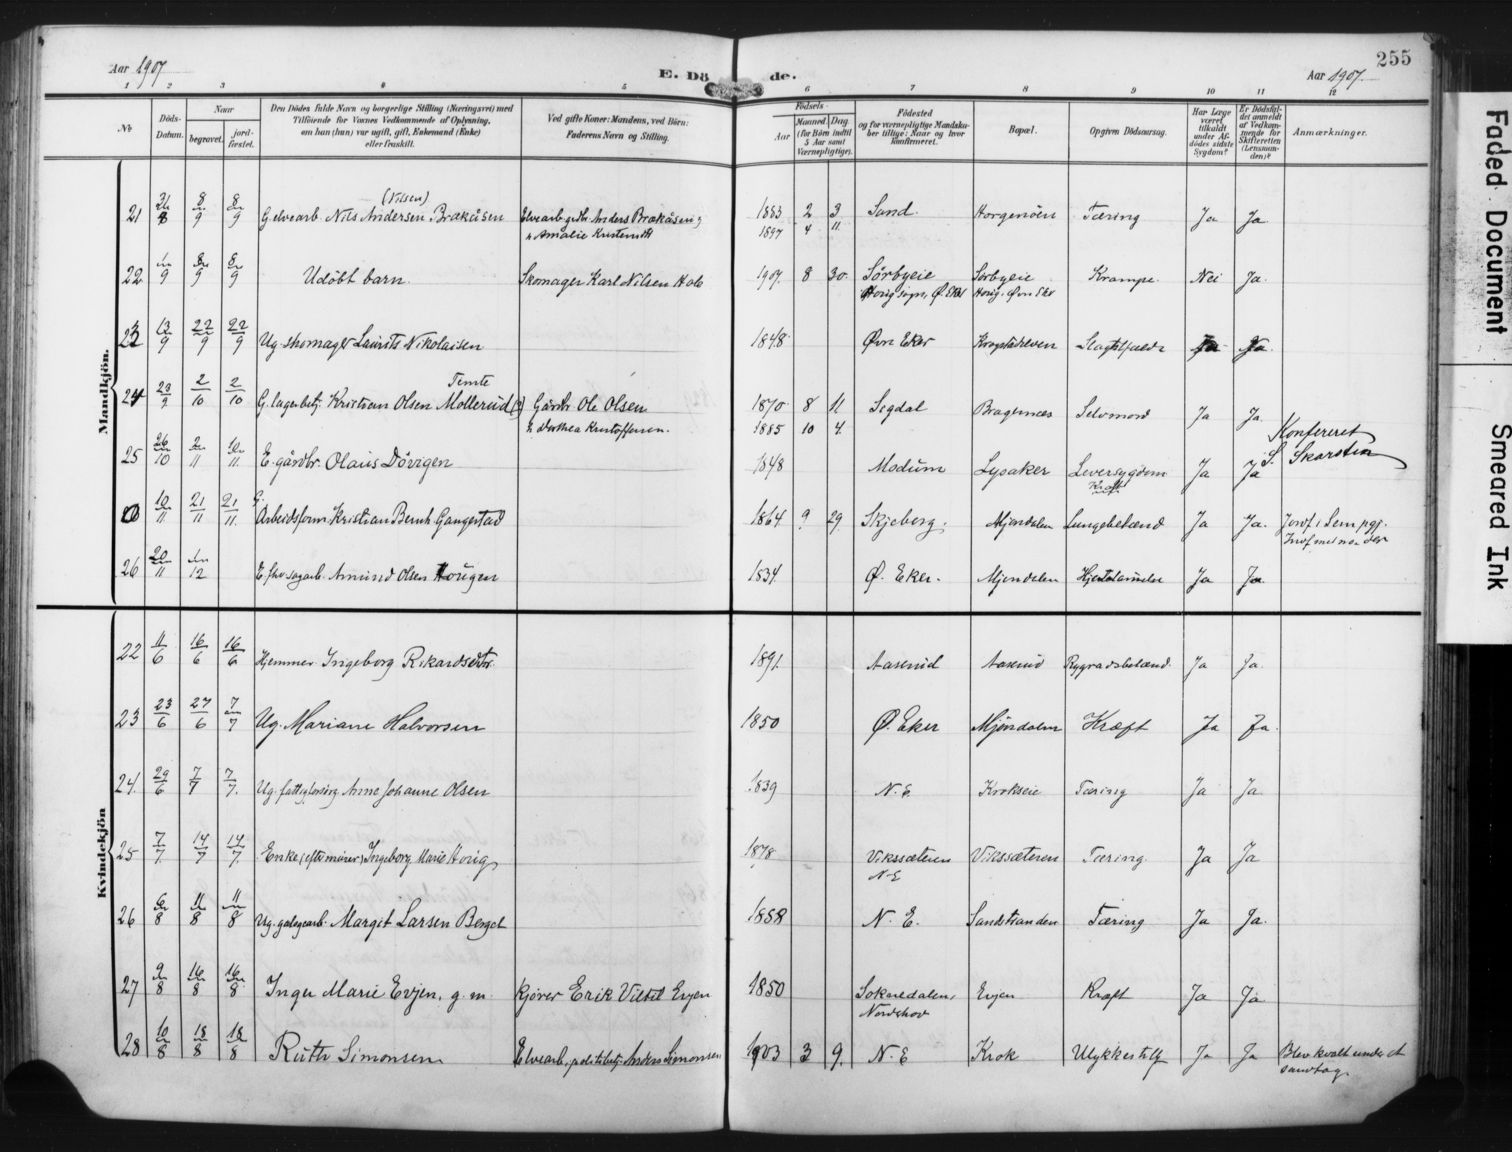 Aar 1907
E. Dö de.
Aar 1907.
255
1 2 3 4 5 6 7 8 9 10 11 12
No
Döds-Datum.
Naar
begravet.
jord-fæstet.
Den Dödes fulde Navn og borgerlige Stilling (Næringsvei) med
Tilföiende for Voxnes Vedkommende af Oplysning,
om han (hun) var ugift, gift, Enkemand (Enke)
eller fraskilt.
Ved gifte Koner: Mandens, ved Börn:
Faderens Navn og Stilling.
Födsels-
Aar
Maaned Dag
(for Börn indtil
5 Aar samt
Værnepligtige).
Födested
og for værnepligtige Mandska-
ber tillige: Naar og hvor
konfirmeret.
Bopæl.
Opgiven Dödsaarsag.
Har Læge
været
tilkaldt
under Af-
dödes sidste
Sygdom?
Er Dödsfal-
det anmeldt
af Vedkom-
mende for
Skifteretten
(Lensman-
den)?
Anmærkninger.
Mandkjön.
(Nilsen)
21 31/8 8/9 8/9 G. elvearb. Nils Andersen Brækåsen Elvearb. gdbr. Anders Brækåsen og 1883 2 3 Sand. Horgenöen Tæring Ja Ja
h. Amalie 1897 4 11
22 1/9 8/9 8/9 Udöbt barn. Skomager Karl Nilsen Hals 1907. 8 30. Sörbyeie Sörbyeie Krampe. Nei Ja.
Horig sogn, Ø. Eker Horig. Øvre Eker
23 13/9 22/9 22/9 Ug. skomager Laurits Nikolaisen 1848 Øvre Eker Krogstadelven Slagtilfælde Ja Ja.
Temte
24 23/9 2/10 2/10 G. lagerbetj. Kristian Olsen Mollerud Gårdbr. Ole Olsen 1870 8 11 Sigdal Bragernæs Selvmord Ja Ja.
h. Dorthea Kristoffersen. 1885 10 4.
Konfereret
S. Skarstein
25 26/10 2/11 10/11 E. gårdbr. Olaus Dövigen 1848 Modum Lysaker Leversygdom Ja Ja
Kræft
10/11 21/11 21/11 G. Arbeidsform. Kristian Bernh. Gangestad 1864 9 29 Skjeberg. Mjöndalen Lungebetænd Ja Ja. Jordf. i Sem pgj.
26 20/11 1/12 E. fhv. sagarb. Amund Olsen Hougen 1834 Ø. Eker. Mjöndalen Hjertelammelse Ja Ja
Kvindekjön
22 11/6 16/6 16/6 Hjemmev. Ingeborg Rikardsdtr. 1891. Aaserud Aaserud Rygradsbetænd. Ja Ja.
23 23/6 27/6 7/7 Ug. Mariane Halvorsen 1850 Ø. Eker Mjöndalen Kræft Ja Ja.
24. 29/6 7/7 7/7. Ug. fattigforsørg. Anne Johanne Olsen 1839 N. E. Krokseie Tæring Ja Ja.
25 7/7 14/7 14/7 Enke (efter murer) Ingeborg Marie Horig 1878 Vikssæteren Vikssæteren Tæring. Ja Ja
N-E
26 6/8 11/8 11/8 Ug. Margit Larsen Berget 1888 N. E. Sandstranden Tæring Ja Ja.
27 9/8 16/8 16/8 Inger Marie Evjen. g. m. kjörer Erik Evjen 1850 Soknedalen, Evjen Kræft Ja Ja
Norderhov
28 10/8 18/8 18/8 Ruth Simonsen Elvearb., politibetj. Anders Simonsen 1903 3 9. N-E Krok Ulykkestilf. Ja Ja Blev kvalt under et
sandtag.
Faded Document
Smeared Ink